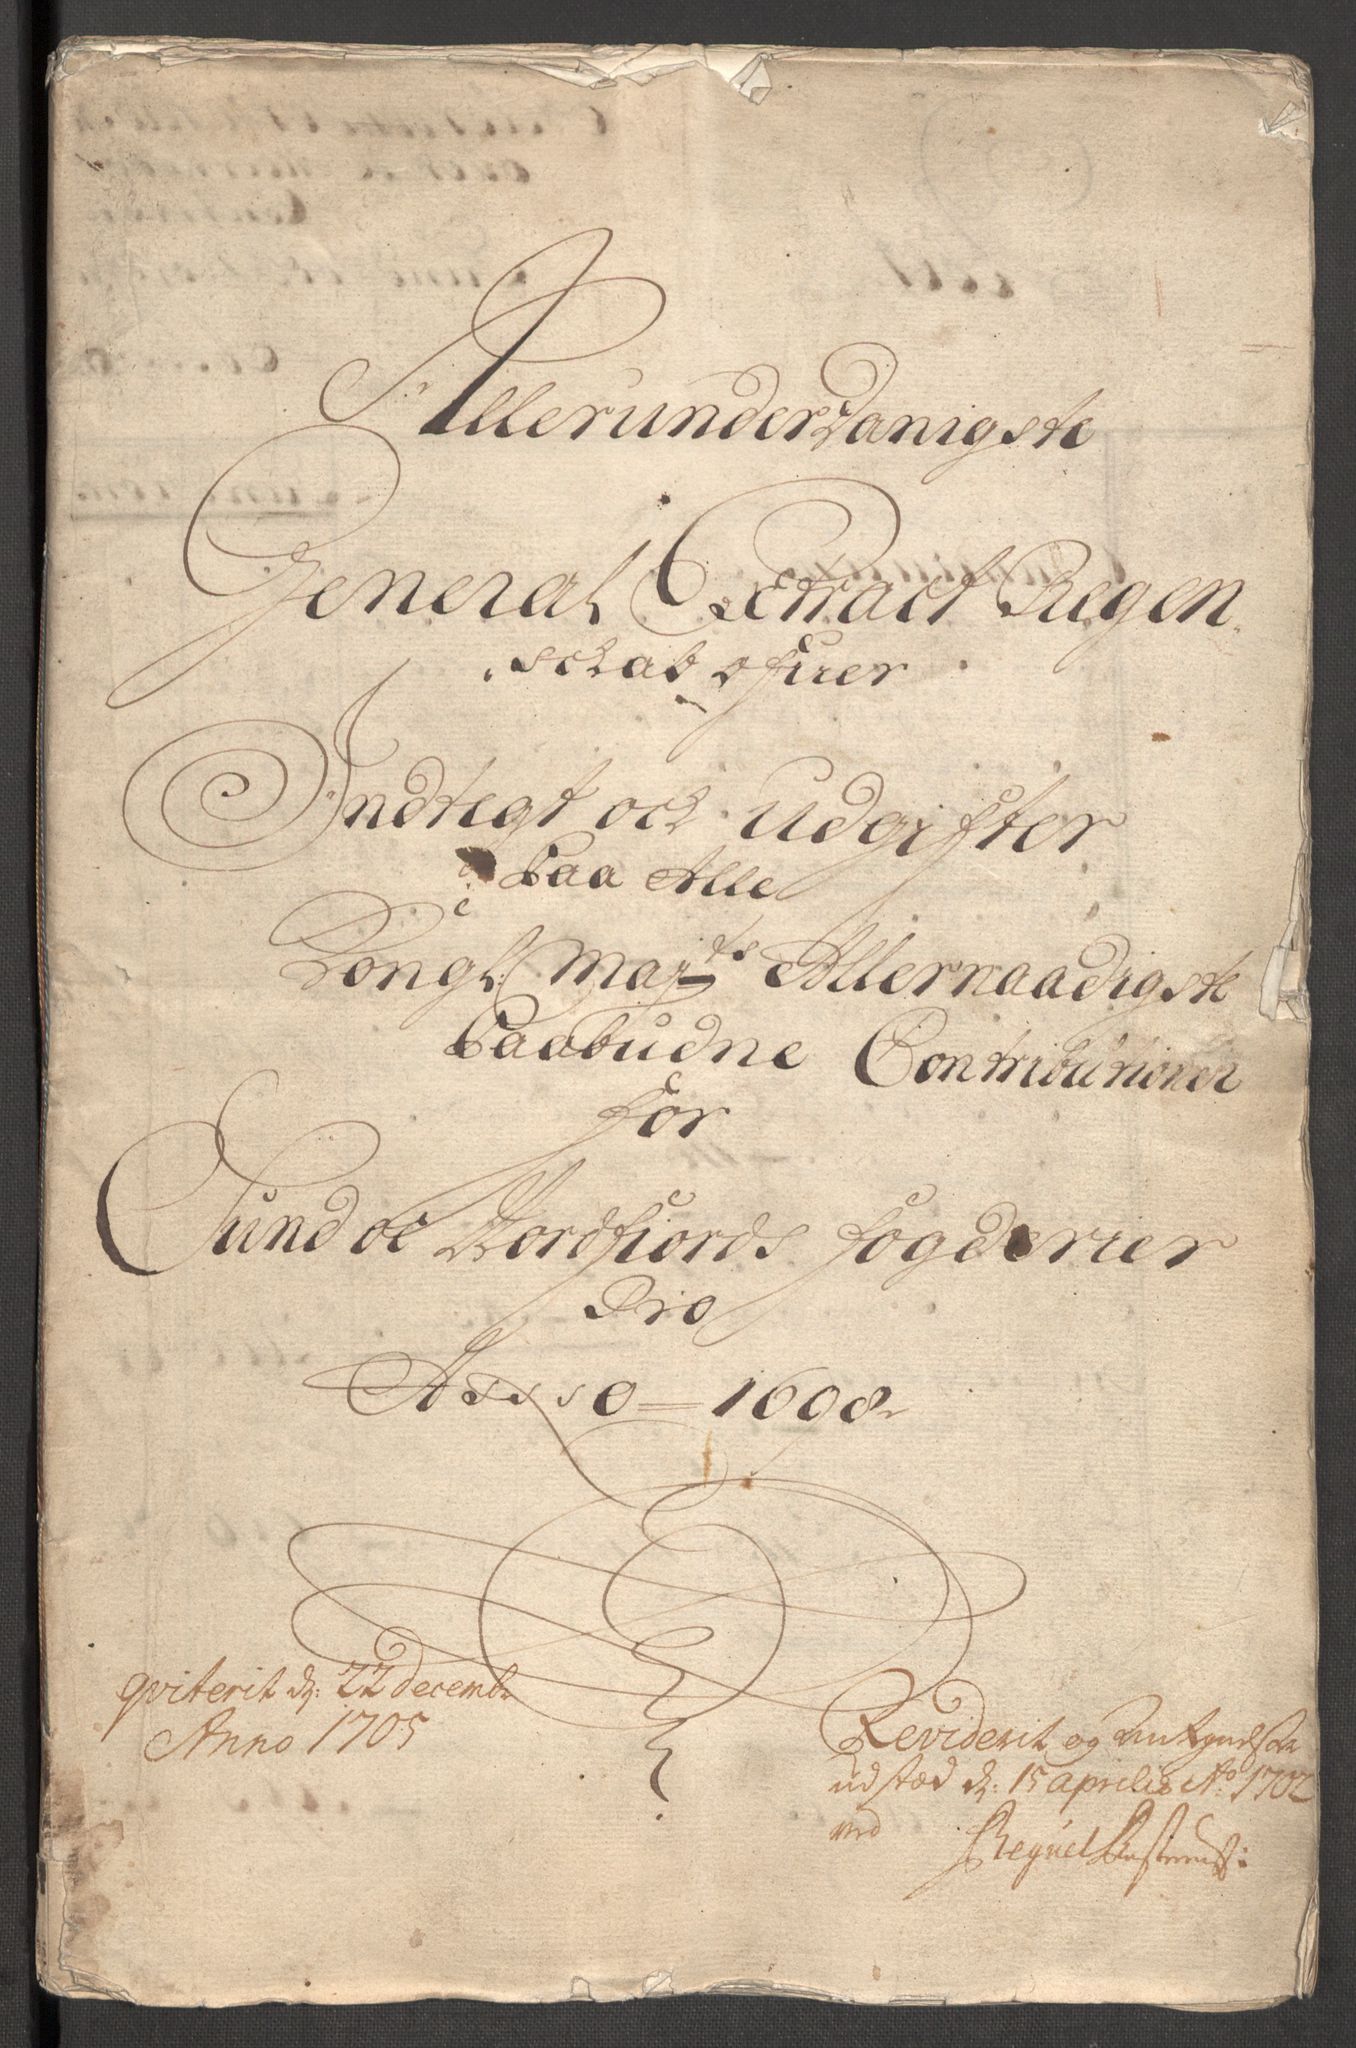 Allerunderdanigste
General Extract Regen
schab ofuer
Indtegt och Udgifter
Paa Alle
Kongl Majts Allernaadigste
Paabudne Contributioner
for
Sund oc Nordfiords fogderier
Pro
Anno 1698
qviterit d: 22 decembr
Anno 1705
Reviderit og
udstæd d: 15 aprilis Ao 1702
ved